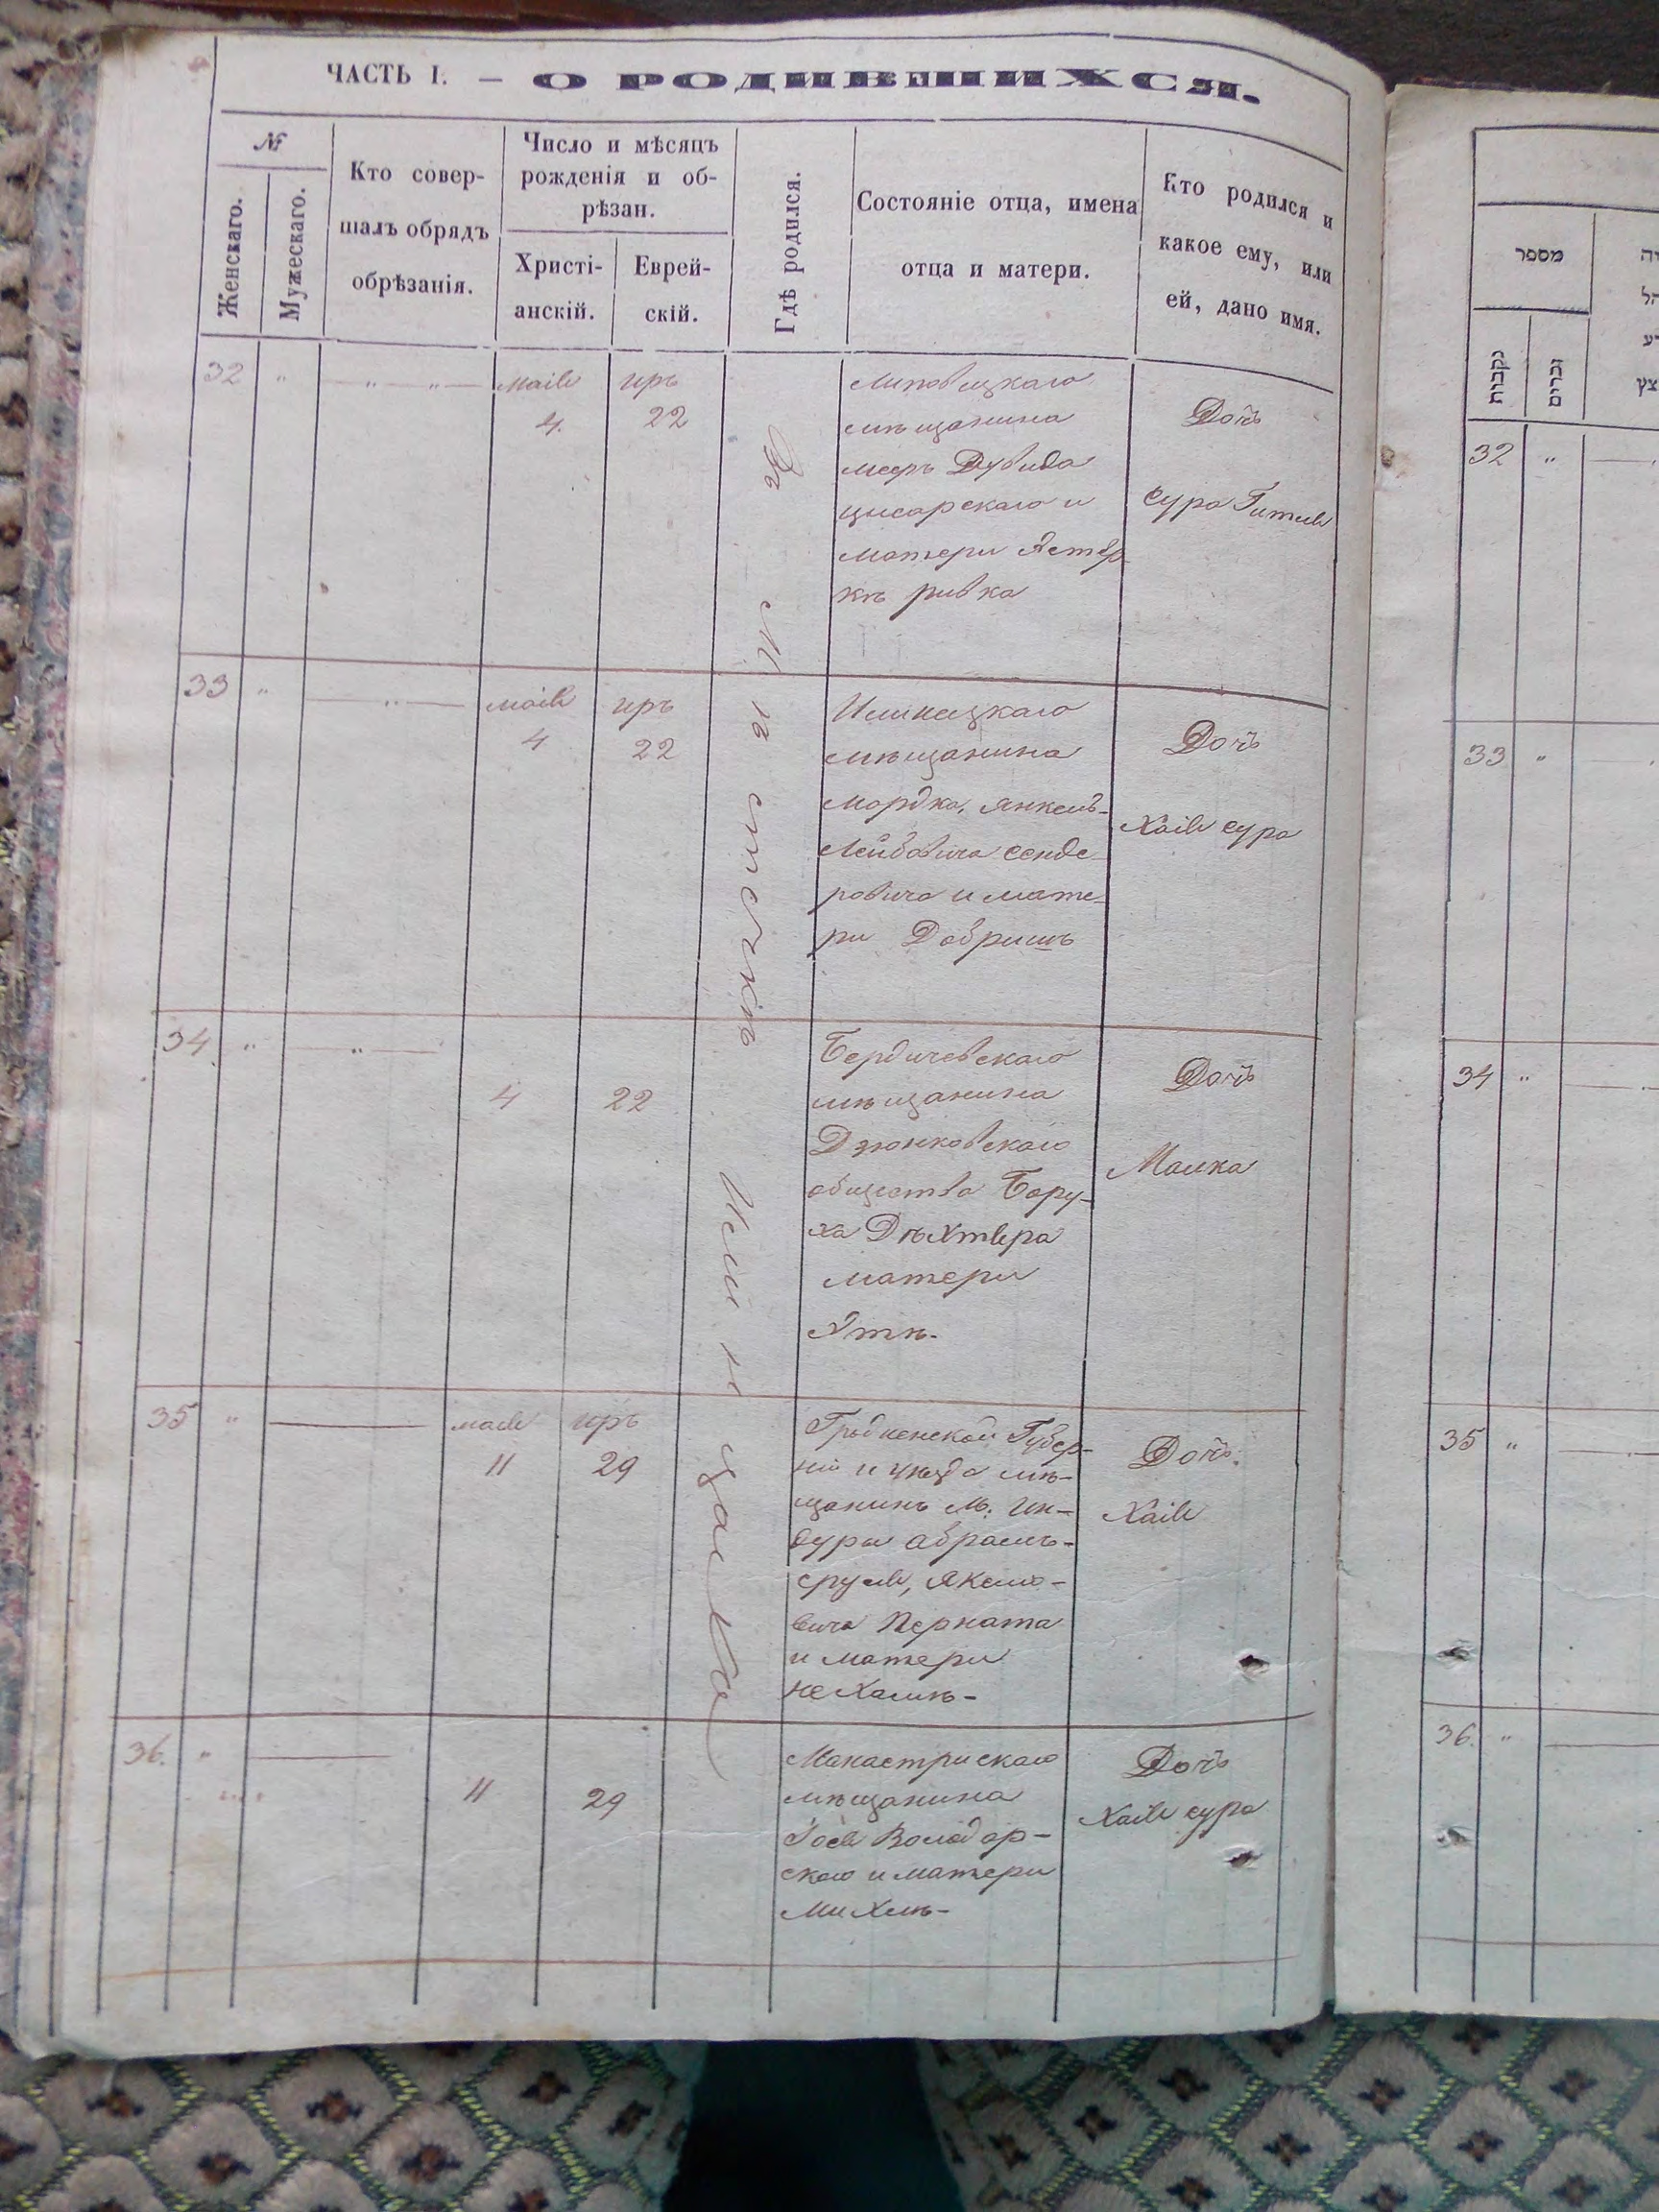 ЧАСТЬ I. — О РОДИВШИХСЯ.
№
Женскаго.
Мужескаго.
Кто совер-
шалъ обрядъ
обрѣзанія.
Число и мѣсяцъ
рожденія и об-
рѣзан.
Христі-
анскій.
Еврей-
скій.
Гдѣ родился.
Состояніе отца, имена
отца и матери.
Кто родился и
какое ему, или
ей, дано имя.
Въ мѣстечкѣ
32 „ — „ — „ — маія иръ
4. 22
Липовецкаго
мѣщанина
меръ Дувида
цисарскаго и
матери Естер
кѣ ривка
Дочъ
Сура Гитля
33 „ — „ — маія иръ
4 22
Илинецкаго
мѣщанина
Мордка, Янкель-
Лейбовича сенде-
ровича и мате-
ри Добришъ
Дочъ
Хаія сура
34 „ „ —
4 22
Бердичевскаго
мѣщанина
Дзюнковскаго
общества Бору-
ха Дѣхтяра
матери
Дочъ
Малка
35 „ — маія иръ
11 29
Гродненской Губер-
ніи и уѣзда мѣ-
щанинъ М. Ин-
дуры Абрамъ-
сруля,
вича Перката
и матери
нехамѣ-
Дочъ.
Хаія
36. „ —
11 29
Манастрискаго
мѣщанина
Володар-
скаго и матери
Михлѣ-
Дочъ
Хаія сура
מספר
נקבות
זכרים
32 „
33 „
34 „
35 „
36. „